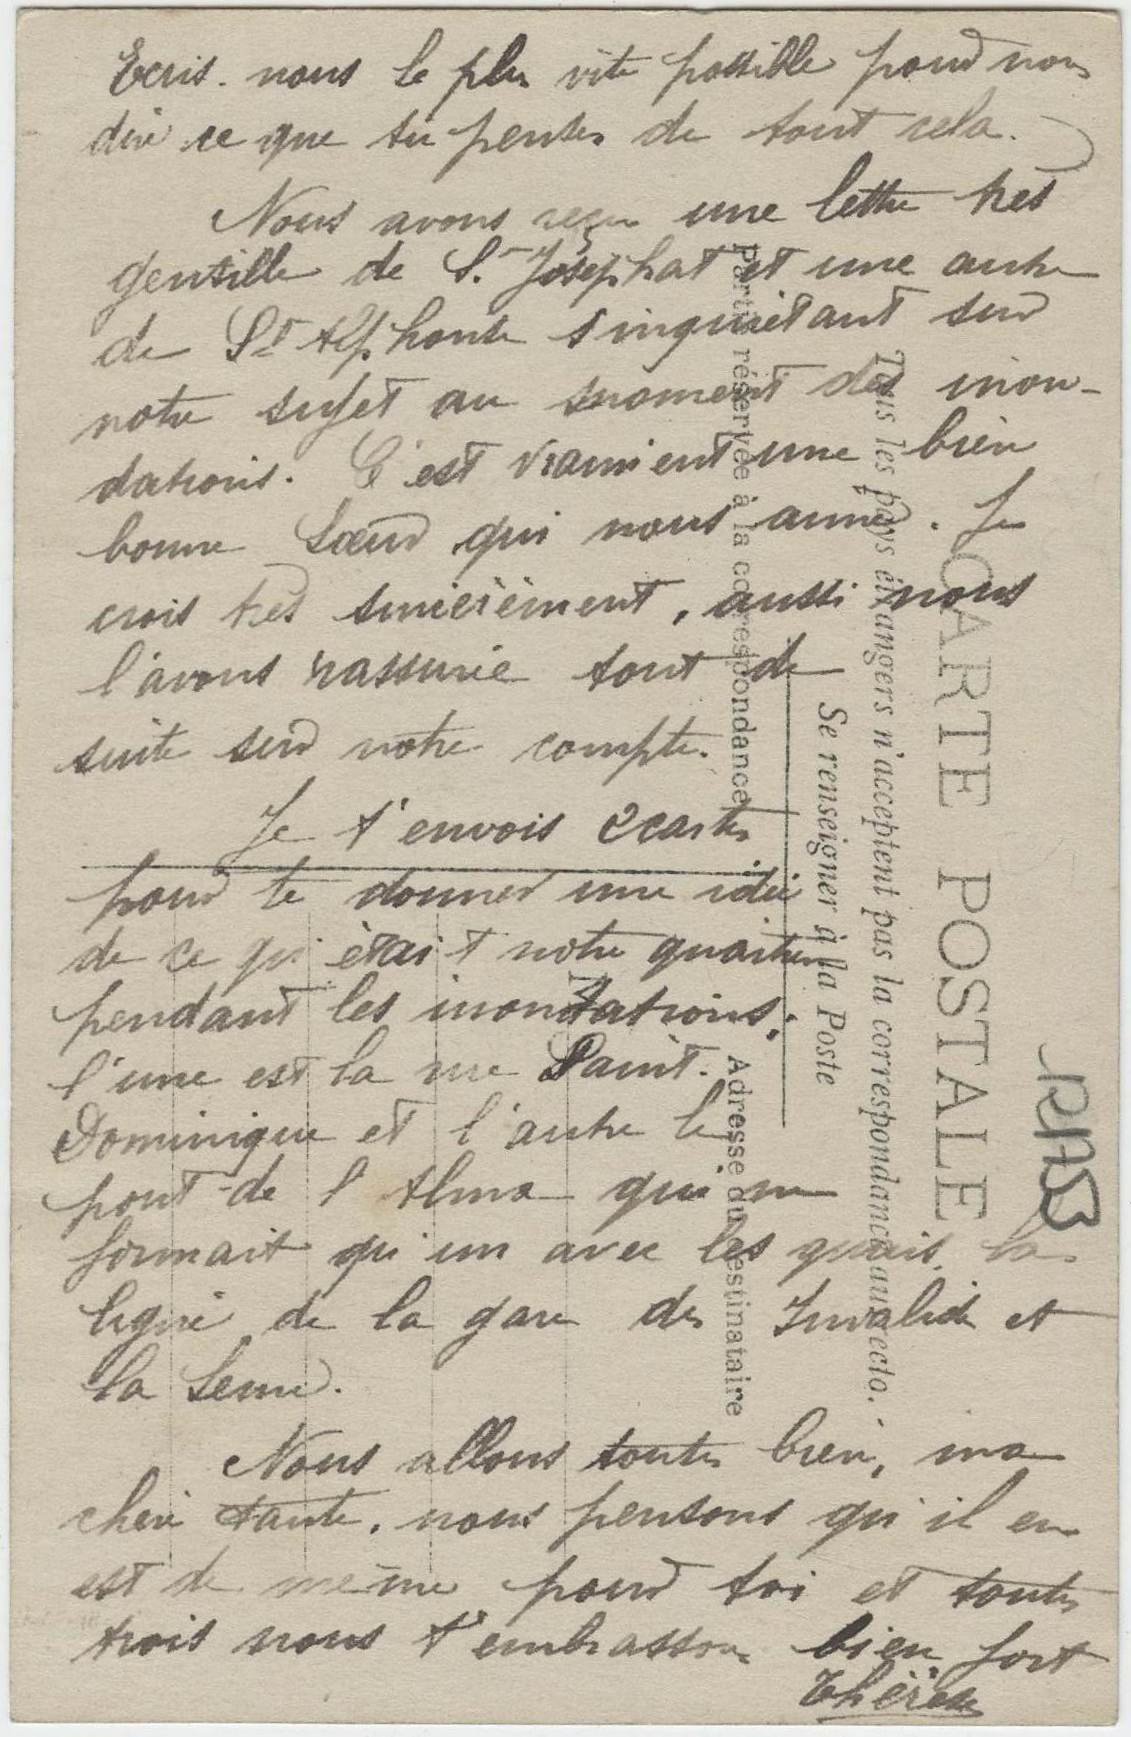 Ecris-nous le plus vite possible pour nous
dire ce que tu penses de tout cela.
Nous avons reçu une lettre très
gentille de St Joséphat et une autre
de St Alphonse s'inquiétant sur
notre sujet au moment des inon-
dations. C'est vraiment une bien
bonne Sœur qui nous aime. Je
crois très sincèrement, aussi nous
l'avons rassurée tout de
suite sur notre compte.
Je t'envois 2 cartes
pour te donner une idée
de ce qu'était notre quartier
pendant les inondations;
l'une est la rue Saint-
Dominique et l'autre le
pont de l'Alma qui ne
formait qu'un avec les quais, la
ligne de la gare des Invalides et
la Seine.
Nous allons toutes bien, ma
chère tante, nous pensons qu'il en
est de même pour toi et toutes
trois nous t'embrassons bien fort
Thérèse
CARTE POSTALE
Tous les pays étrangers n'acceptent pas la correspondance au recto. -
Se renseigner à la Poste
Partie réservée à la correspondance
Adresse du destinataire
M